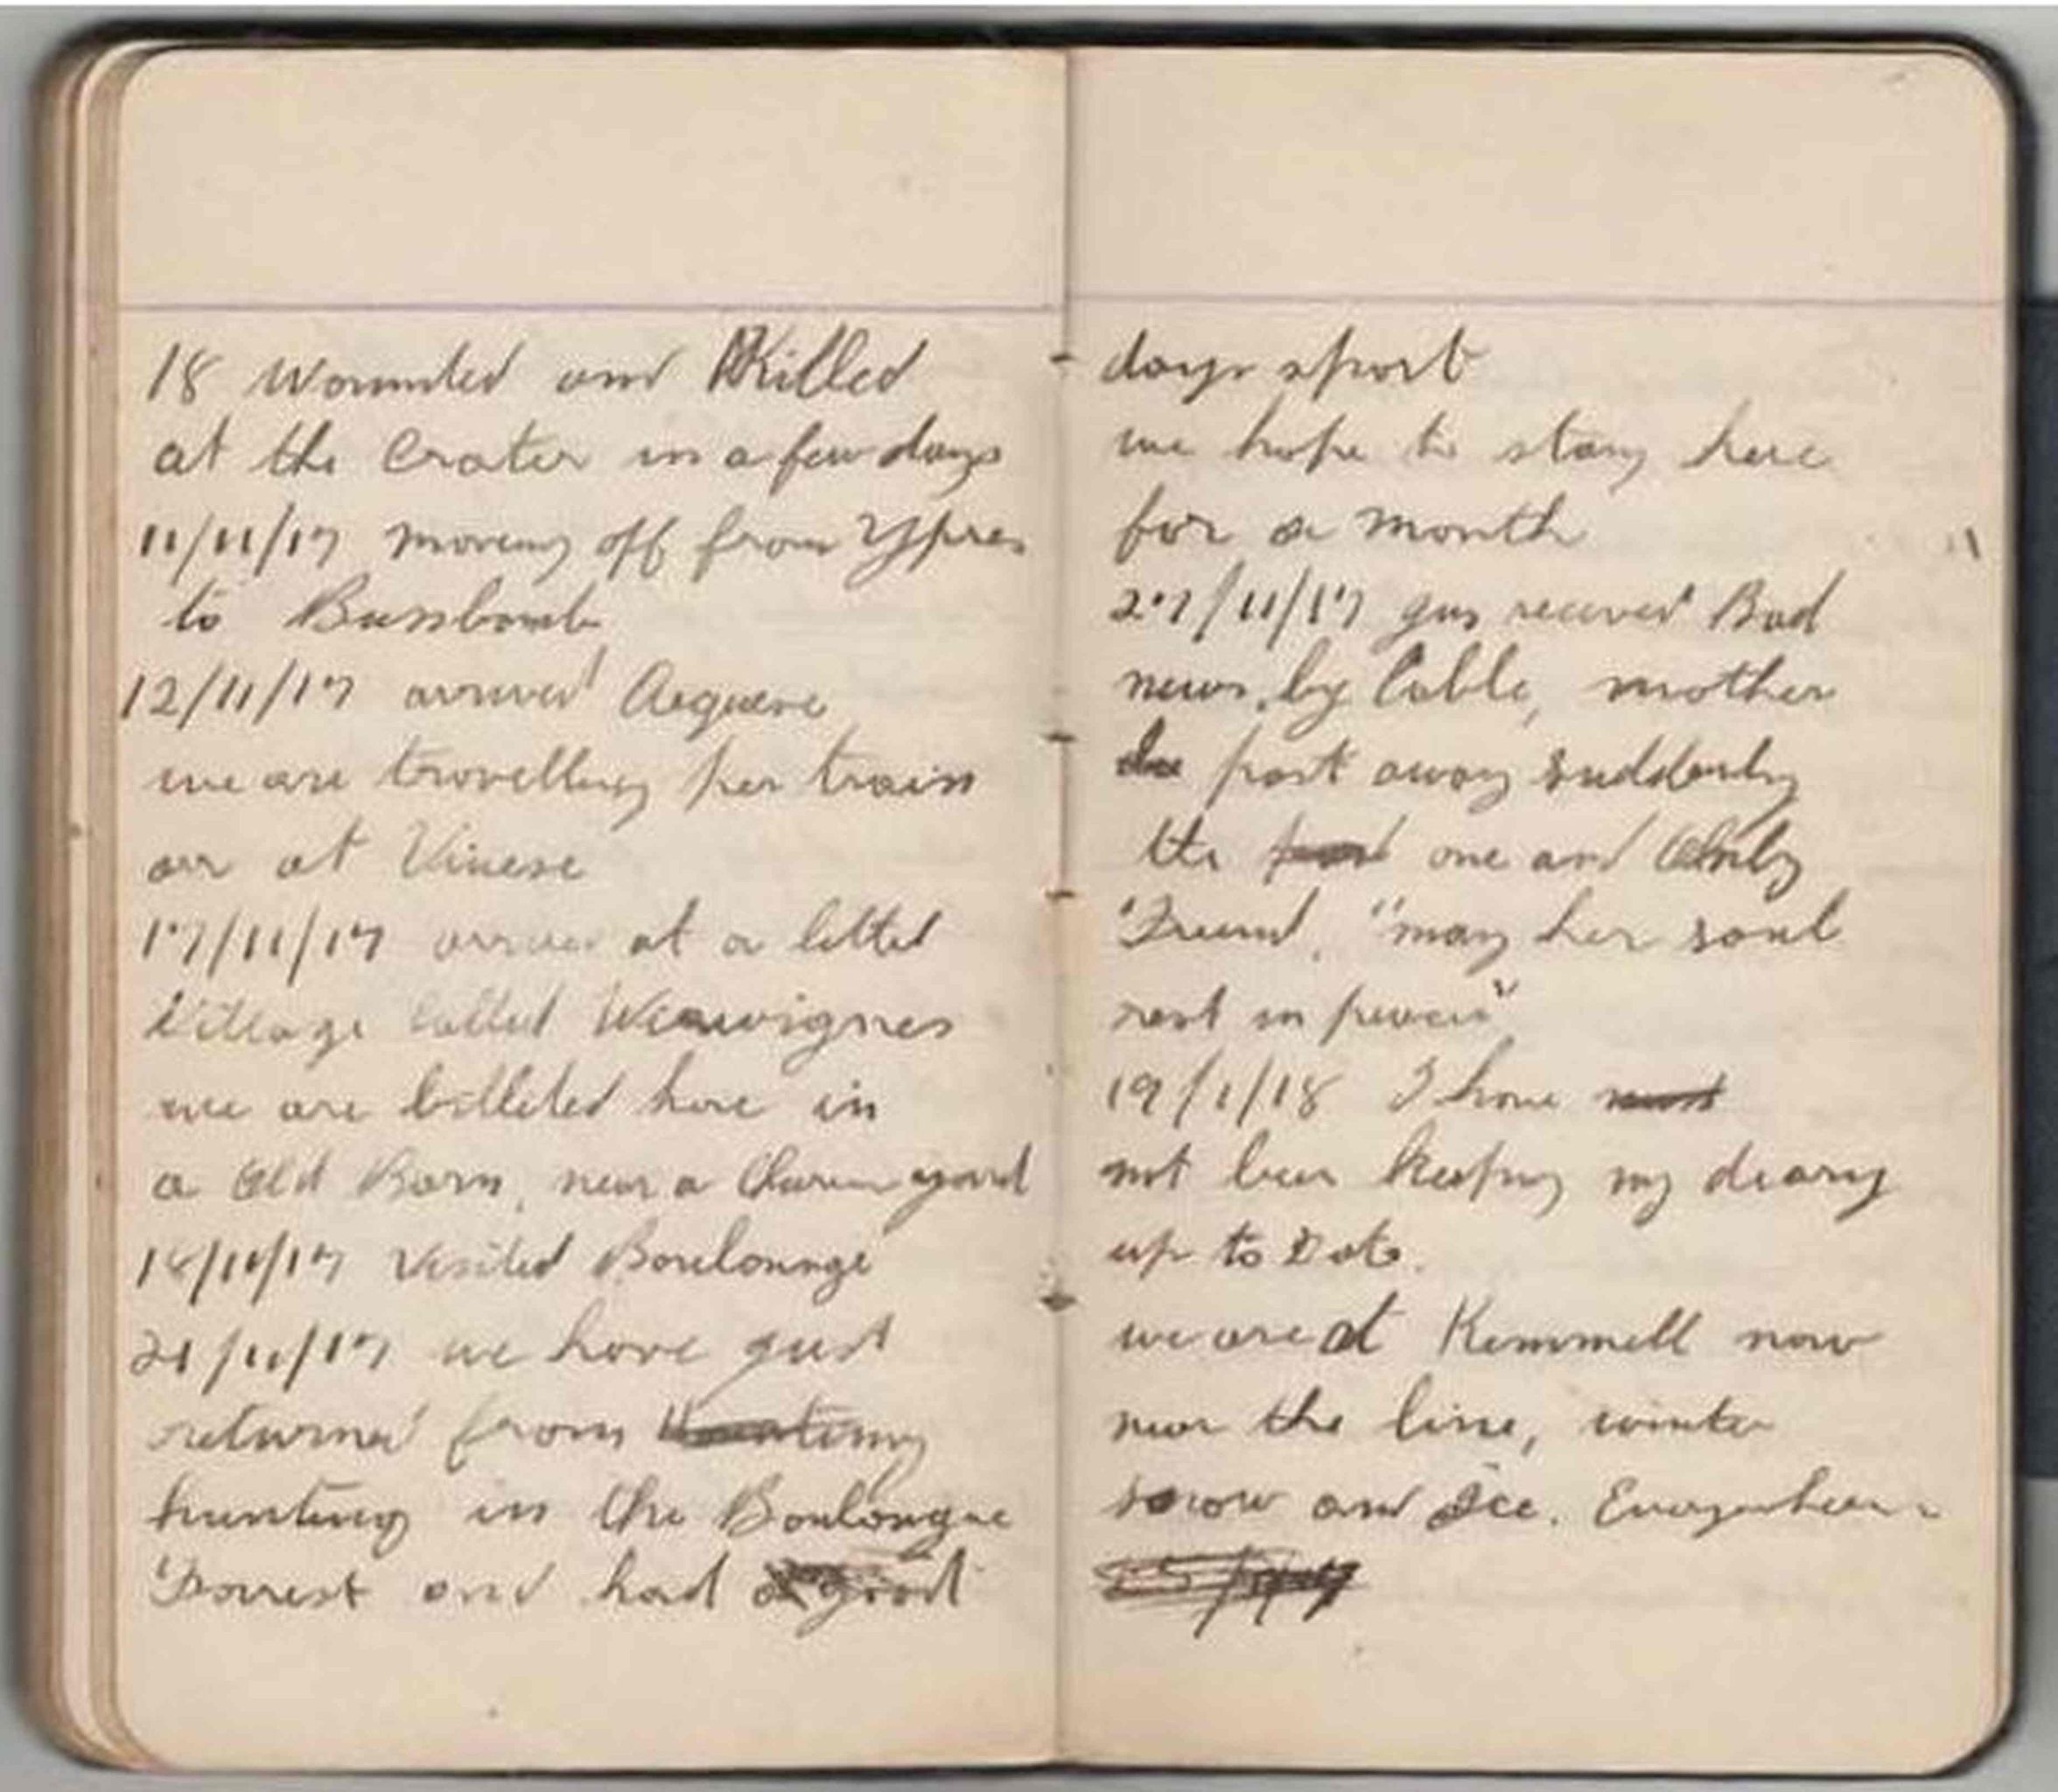 18 Wounded and Killed
at the Crater in a few days
11/11/17 moveing off from Ypres
to
12/11/17 arrived Arquere
we are travelling per train
arr at Vinese
17/11/17 arrived at a littel
Village Called
we are billeted here in
a Old Barn, near a yard
18/11/17 Visited Borelounge
21/11/17 we have just
returned from
hunting in the Boulongue
Forrest and had a good
days sport
we hope to stay here
for a month
27/11/17 gus received Bad
news, by Cable, mother
past away suddenly
the one and Only
Friend. "may her soul
rest in peace"
19/1/18 I have
not been keeping my diary
up to Date.
we are at Kemmell now
near the line, winter
snow and Ice.